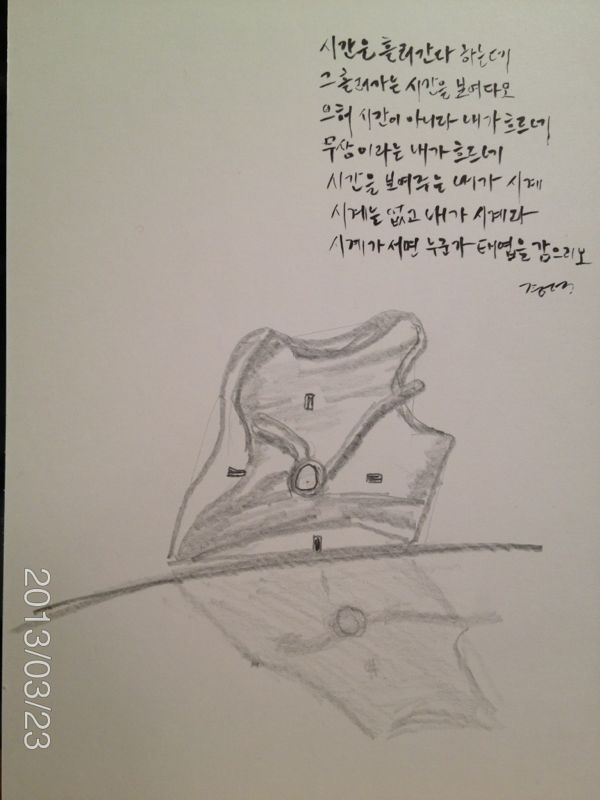 시간은 흘러간다 하는데
그 흘러가는 시간을 보여다오
으허 시간이 아니라 내가 흐르네
무상이라는 내가 흐르네
시간을 보여주는 내가 시계
시계는 없고 내가 시계라
시계가 서면 누군가 태엽을 감으리오
2013/03/23